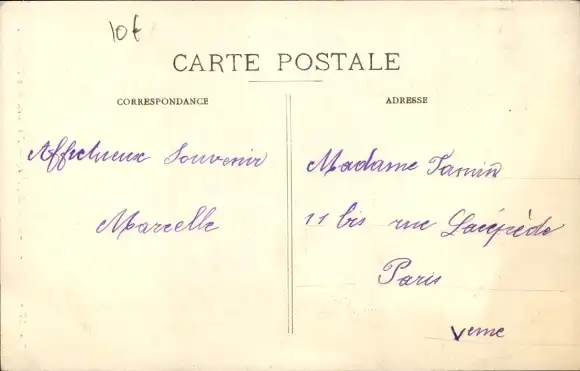 10€
CARTE POSTALE
CORRESPONDANCE
ADRESSE
Affectueux Souvenir
Marcelle
Madame
11 bis rue Lacépède
Paris
Veme